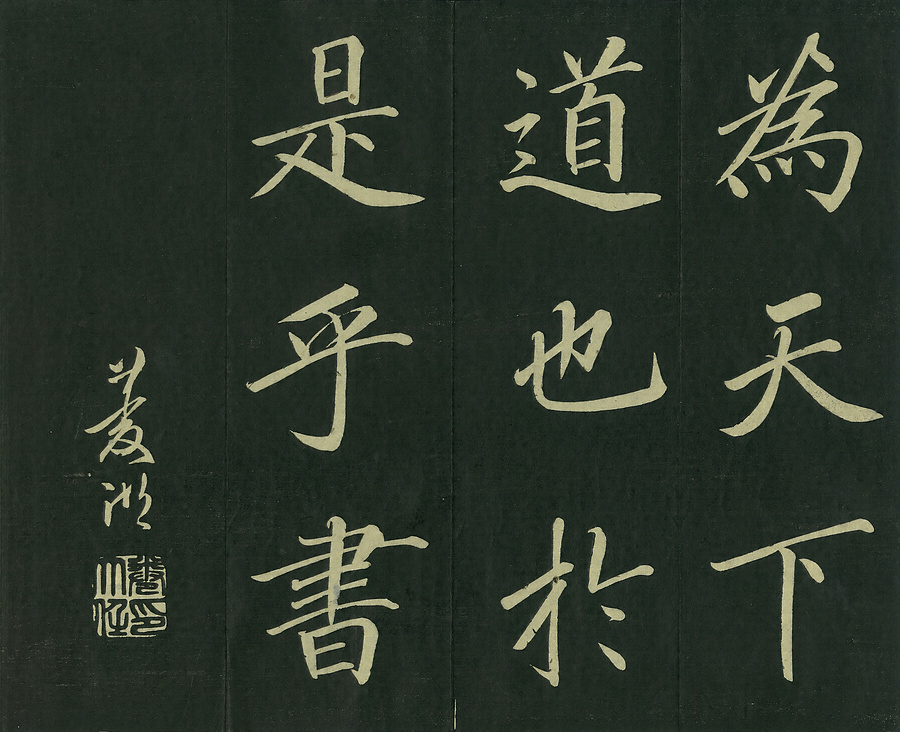 為天下
道也於
是乎書
菱湖